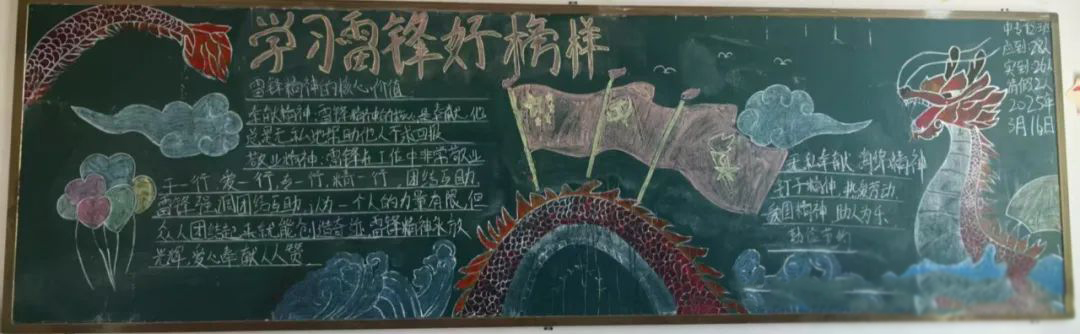 学习雷锋好榜样
雷锋精神的核心价值
奉献精神：雷锋精神的核心是奉献，他
总是无私地帮助他人不求回报
敬业精神：雷锋在工作中非常敬业
干一行，爱一行，专一行，精一行，团结互助
雷锋强调团结互助，认为一个人的力量有限，但
众人团结起来就能创造奇迹，雷锋精神永放
光辉，爱心奉献人人赞
无私奉献 雷锋精神
钉子精神 热爱劳动
爱国精神 助人为乐
勤俭节约
应到：28人
实到：26人
请假2人
2025年
3月16日